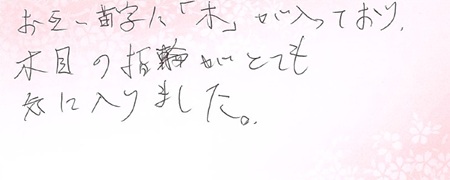 お互い苗字に「木」が入っており、
木目の指輪がとても
気に入りました。